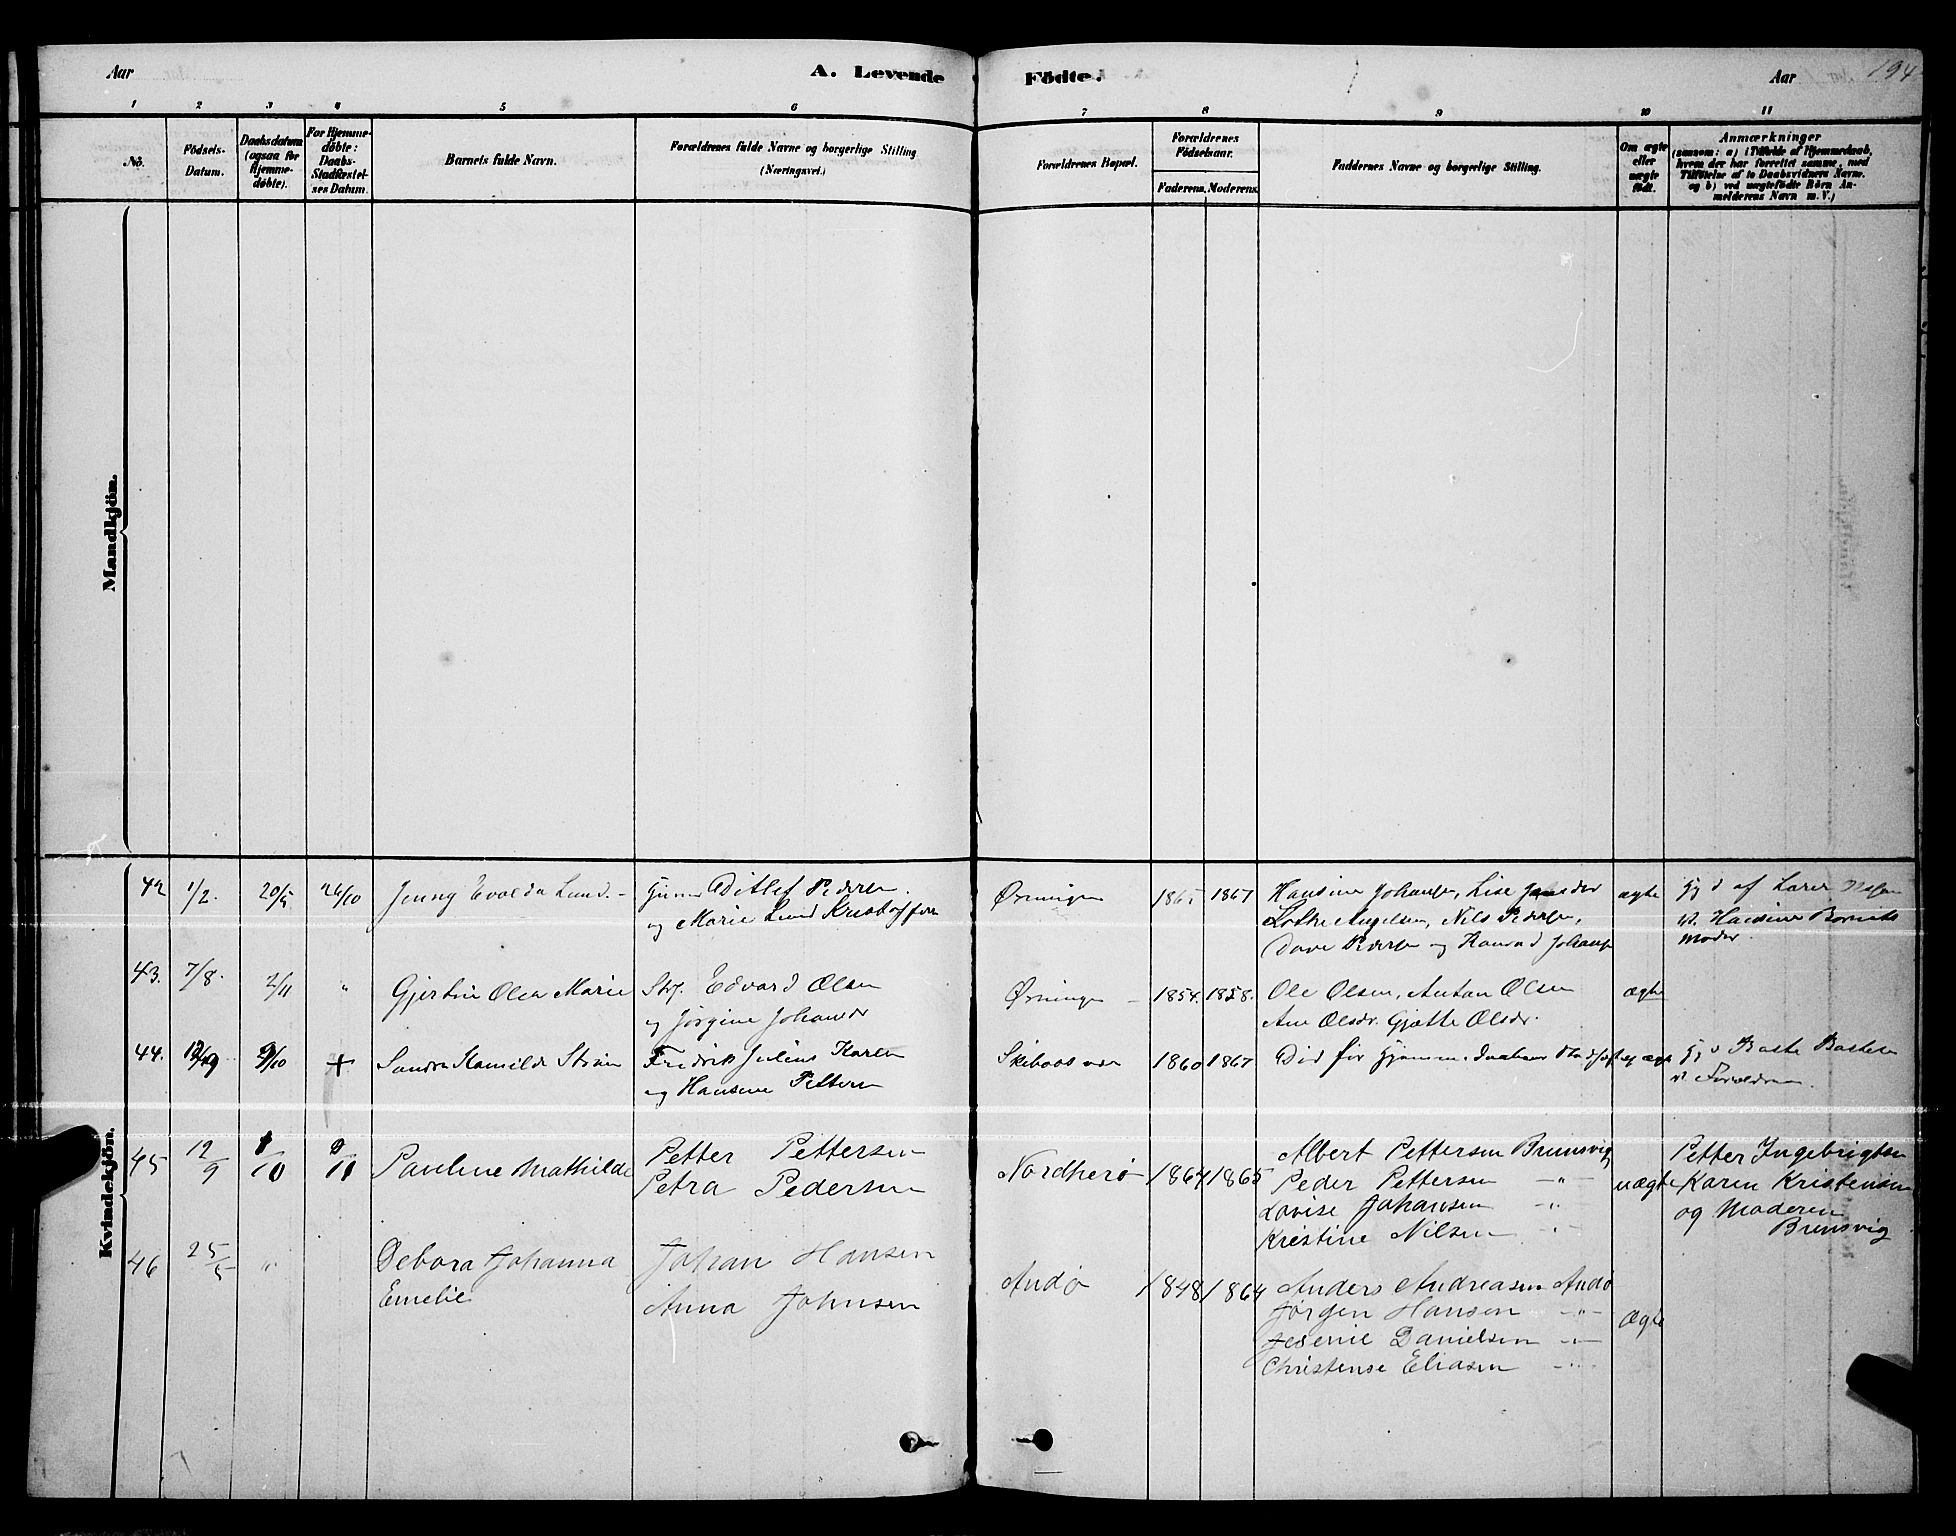 Aar
A. Levende
Födte.
Aar
194
1
2
3
4
5
6
7
8
9
10
11
No.
Födsels-
Datum.
Daabsdatum
(ogsaa for
Hjemme-
døbte).
For Hjemme-
døbte:
Daabs-
Stadfæstel-
ses Datum.
Barnets fulde Navn.
Forældrenes fulde Navne og borgerlige Stilling
(Næringsvei.)
Forældrenes Bopæl.
Forældrenes
Fødselsaar.
Faderens.
Moderens.
Faddernes Navne og borgerlige Stilling.
Om ægte
eller
uægte
födt.
Anmærkninger
(saasom: a) i Tilfælde af Hjemmedaab,
hvem der har forrettet samme, med
Tilföielse af to Daabsvidners Navne,
og b) ved uægtefødte Börn An-
melderens Navn m. V.)
Mandkjön.
Kvindekjön.
42
1/2.
20/5
26/10
Jenny Evalda Lund.-
Ditlef Pedersen
og Marie Lund Kristoffersen
Ørningen
1865
1867
Hansine Johansen, Lise
Angelsen, Nils Pedersen,
Pedersen og Konrad Johansen
ægte
af Lærer
Hansine Barnets
Moder.
43.
7/8.
2/11
"
Gjertine Olea Marie
Edvard Olsen
og Jørgine Johansdr
Ørningen
1854.
1858.
Ole Olsen, Anton Olsen
Ane Olsdr. Gjætte Olsdr.
ægte
44.
9/10
+
Sandra Kamilda
Fredrik Julius Karlsen
og Hansine Pettersen
1860
1867.
Død før Hjemmedaaben
ægte
Forældrene.
45
12/9
10
11
Pauline Mathilde
Petter Pettersen
Petra Pedersen
Nordherø
1864
1865
Albert Pettersen Brunsvig
Peder Pettersen -"-
Lovise Johansen -"-
Kristine Nilsen -"-
uægte
Petter Ingebrigtsen
Karen Kristensen
og Moderen
Brunsvig
46
25/5
"
Debora Johanna
Emelie
Johan Hansen
Anna Johnsen
Andø
1848
1864
Anders Andreasen Andø
Jørgen Hansen -"-
Jesenie Danielsen -"-
Christense Eliasen -"-
Ægte